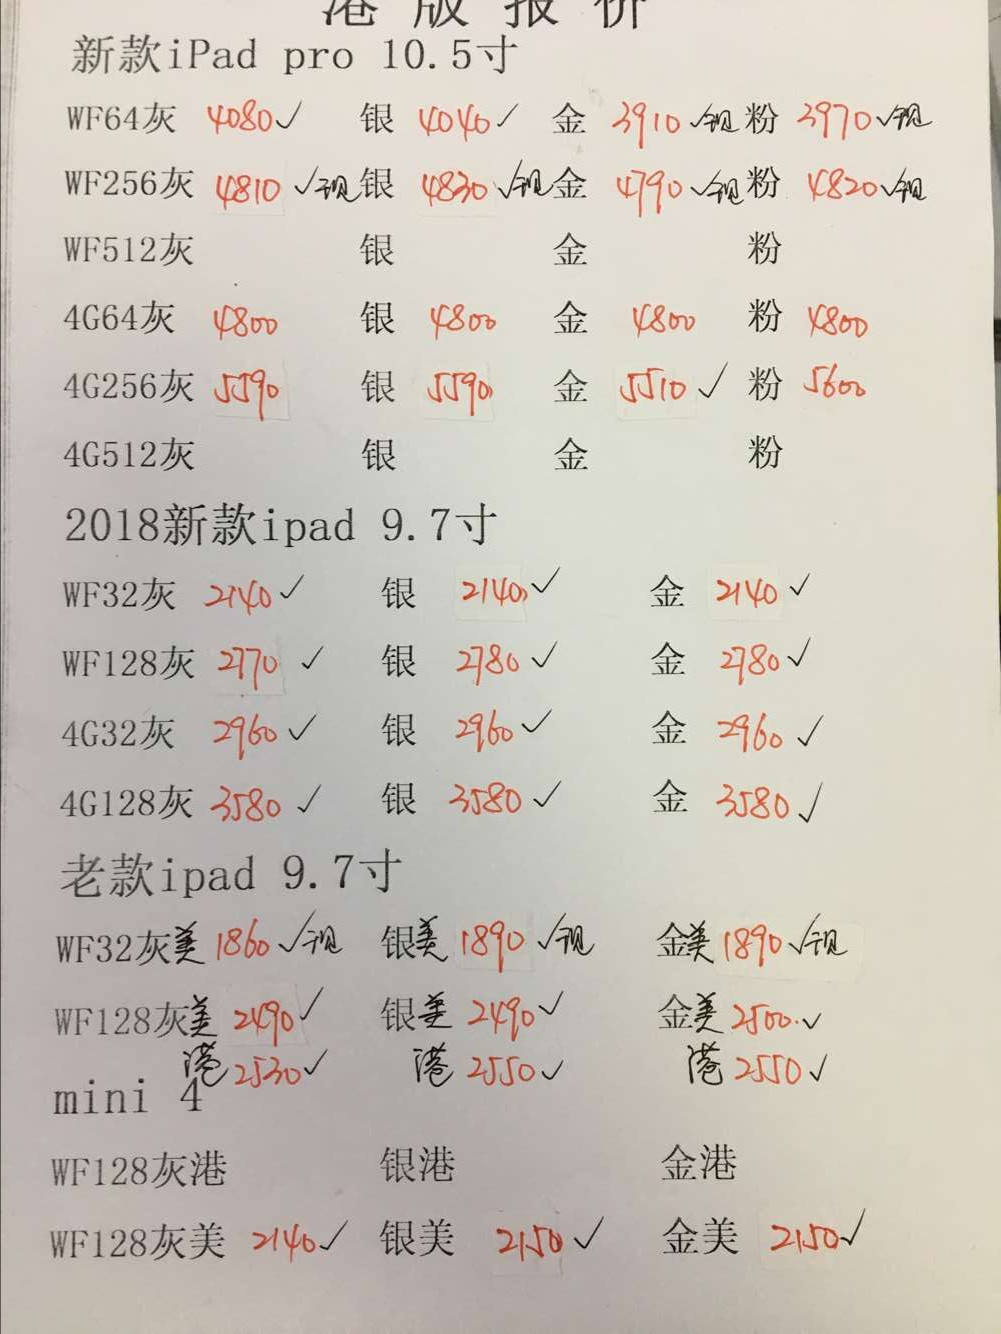 港版报价
新款iPad pro 10.5寸
WF64灰 4080✓ 银 4040✓ 金 3910✓现 粉 3970✓现
WF256灰 4810✓现 银 4830✓现 金 4790✓现 粉 4820✓现
WF512灰 银 金 粉
4G64灰 4800 银 4800 金 4800 粉 4800
4G256灰 5590 银 5590 金 5510✓ 粉 5600
4G512灰 银 金 粉
2018新款ipad 9.7寸
WF32灰 2140✓ 银 2140✓ 金 2140✓
WF128灰 2770✓ 银 2780✓ 金 2780✓
4G32灰 2960✓ 银 2960✓ 金 2960✓
4G128灰 3580✓ 银 3580✓ 金 3580✓
老款ipad 9.7寸
WF32灰美 1860✓现 银美 1890✓现 金美 1890✓现
WF128灰美 2490✓ 银美 2490✓ 金美 2500✓
港 2530✓ 港 2550✓ 港 2550✓
mini 4
WF128灰港 银港 金港
WF128灰美 2140✓ 银美 2150✓ 金美 2150✓